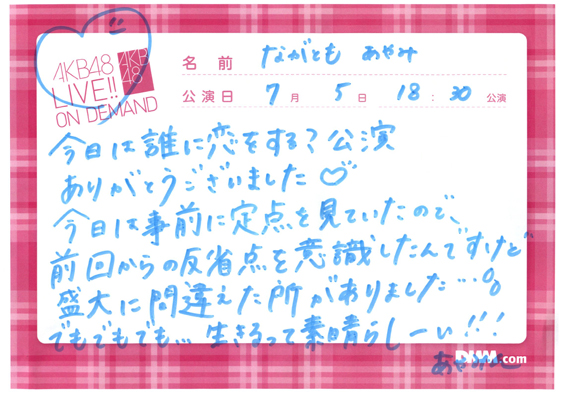 AKB48
LIVE!!
ON DEMAND
AKB
48
名 前 ながとも あやみ
公演日 7月 5日 18:30 公演
今日は誰に恋をする?公演
ありがとうございました♡
今日は事前に定点を見ていたので、
前回からの反省点を意識したんですけど
盛大に間違えた所がありました…。。
でもでもでも… 生きるって素晴らしーい!!!
DMM.com